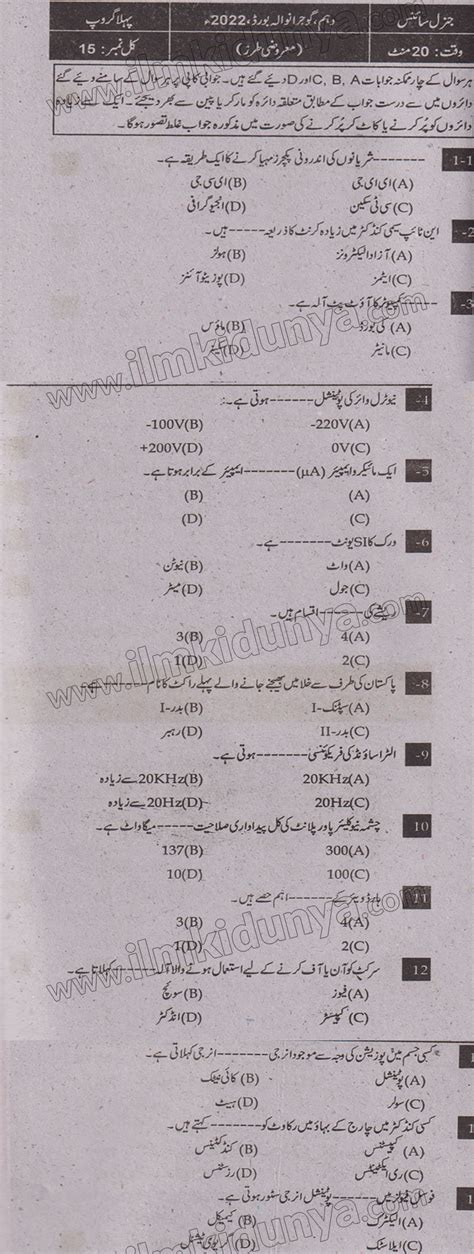 جنرل سائنس دہم، گوجرانوالہ بورڈ، 2022ء پہلا گروپ
وقت: 20 منٹ (معروضی طرز) کل نمبر: 15
ہر سوال کے چار ممکنہ جوابات A، B، C اور D دیئے گئے ہیں۔ جوابی کاپی پر ہر سوال کے سامنے دیئے گئے
دائروں میں سے درست جواب کے مطابق متعلقہ دائرہ کو مارکر یا پین سے بھر دیجئے۔ ایک سے زیادہ
دائروں کو پُر کرنے یا کاٹ کر پُر کرنے کی صورت میں مذکورہ جواب غلط تصور ہوگا۔
1-1 -------شریانوں کی اندرونی پکچرز مہیا کرنے کا ایک طریقہ ہے۔
(A) ای ای جی (B) ای سی جی
(C) سی ٹی سکین (D) انجیوگرافی
2- این ٹائپ سیمی کنڈکٹر میں زیادہ کرنٹ کا ذریعہ-----ہیں۔
(A) آزاد الیکٹرونز (B) ہولز
(C) ایٹمز (D) پوزیٹو آئنز
3- -----کمپیوٹر کا آؤٹ پٹ آلہ ہے۔
(A) کی بورڈ (B) ماؤس
(C) مانیٹر (D) سکینر
4- نیوٹرل وائر کی پوٹینشل------ہوتی ہے۔
(A) -220V (B) -100V
(C) 0V (D) +200V
5- ایک مائیکرو ایمپیئر (µA)------ایمپیئر کے برابر ہوتا ہے۔
(A) (B)
(C) (D)
6- ورک کا SI یونٹ--------ہے۔
(A) واٹ (B) نیوٹن
(C) جول (D) میٹر
7- ریشے کی------اقسام ہیں۔
(A) 4 (B) 3
(C) 2 (D) 1
8- پاکستان کی طرف سے خلا میں بھیجے جانے والے پہلے راکٹ کا نام-----ہے۔
(A) سپٹنک-I (B) بدر-I
(C) بدر-II (D) رہبر
9- الٹراساؤنڈ کی فریکوئنسی-------ہوتی ہے۔
(A) 20KHz (B) 20KHz سے زیادہ
(C) 20Hz (D) 20Hz سے زیادہ
10 چشمہ نیوکلیئر پاور پلانٹ کی کل پیداواری صلاحیت-----میگاواٹ ہے۔
(A) 300 (B) 137
(C) 100 (D) 10
11 ہارڈویئر کے------اہم حصے ہیں۔
(A) 4 (B) 3
(C) 2 (D) 1
12 سرکٹ کو آن یا آف کرنے کے لیے استعمال ہونے والا آلہ-----کہلاتا ہے۔
(A) فیوز (B) سوئچ
(C) کپیسٹر (D) انڈکٹر
1 کسی جسم میں پوزیشن کی وجہ سے موجود انرجی-------انرجی کہلاتی ہے۔
(A) پوٹینشل (B) کائی نیٹک
(C) سولر (D) ہیٹ
1 کسی کنڈکٹر میں چارج کے بہاؤ میں رکاوٹ کو-------کہتے ہیں۔
(A) کپیسٹنس (B) کنڈکٹینس
(C) ری ایکٹینس (D) رزسٹنس
1 فوسل فیولز میں------پوٹینشل انرجی سٹور ہوتی ہے۔
(A) الیکٹرک (B) کیمیکل
(C) ایلاسٹک (D) پوٹینشل
www.ilmkidunya.com
www.ilmkidunya.com
www.ilmkidunya.com
www.ilmkidunya.com
www.ilmkidunya.com